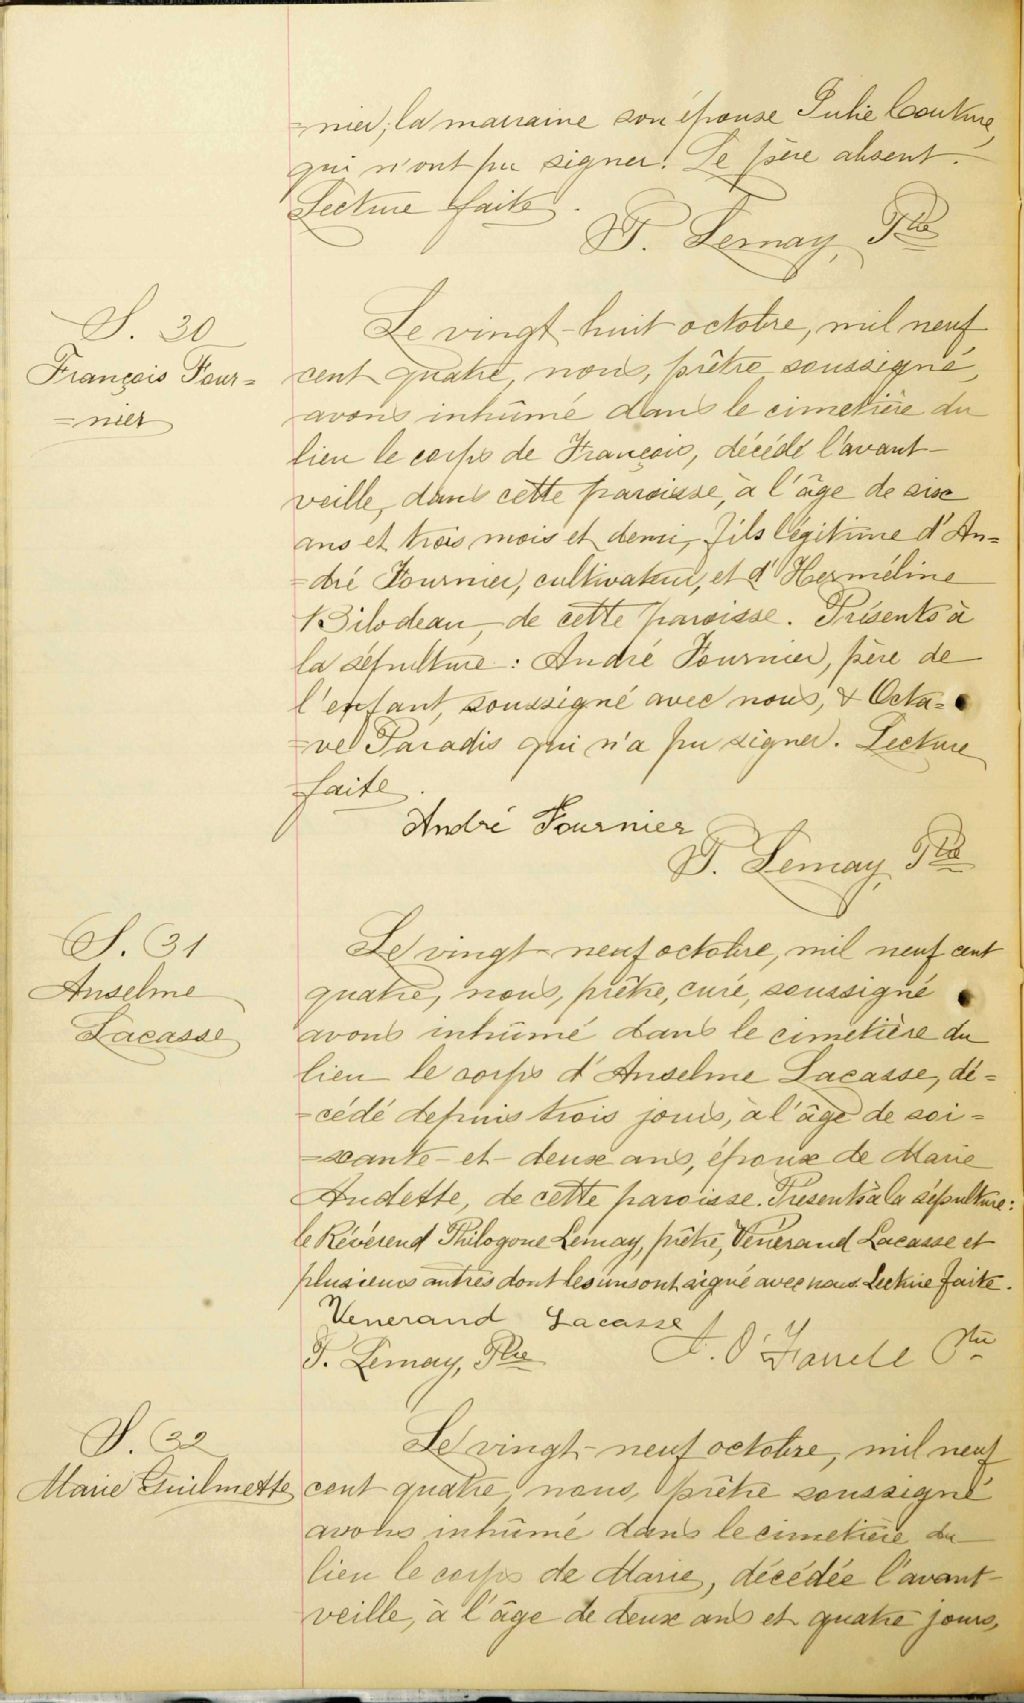 =nier; la marraine son épouse Julie Couture,
qui n'ont pu signer. Le père absent.
Lecture faite.
P. Lemay, Ptre
S. 30
François Four=
=nier
Le vingt-huit octobre, mil neuf
cent quatre, nous, prêtre soussigné,
avons inhûmé dans le cimetière du
lieu le corps de François, décédé l'avant-
veille, dans cette paroisse, à l'âge de six
ans et trois mois et demi, fils légitime d'An=
=dré Fournier, cultivateur, et d'Herméline
Bilodeau, de cette paroisse. Présents à
la sépulture : André Fournier, père de
l'enfant, soussigné avec nous, & Octa=
=ve Paradis qui n'a pu signer. Lecture
faite.
André Fournier
P. Lemay, Ptre
S. 31
Anselme
Lacasse
Le vingt-neuf octobre, mil neuf cent
quatre, nous, prêtre, curé, soussigné
avons inhûmé dans le cimetière du
lieu le corps d'Anselme Lacasse, dé=
=cédé depuis trois jours, à l'âge de soi=
=xante-et-deux ans, époux de Marie
Audette, de cette paroisse. Présents à la sépulture :
le Révérend Philogone Lemay, prêtre, Vénérand Lacasse et
plusieurs autres dont les uns ont signé avec nous. Lecture faite.
Venerand Lacasse
P. Lemay, Ptre
J. O'Farrell Ptre
S. 32
Marie Guilmette
Le vingt-neuf octobre, mil neuf
cent quatre, nous, prêtre soussigné
avons inhûmé dans le cimetière du
lieu le corps de Marie, décédée l'avant-
veille, à l'âge de deux ans et quatre jours,